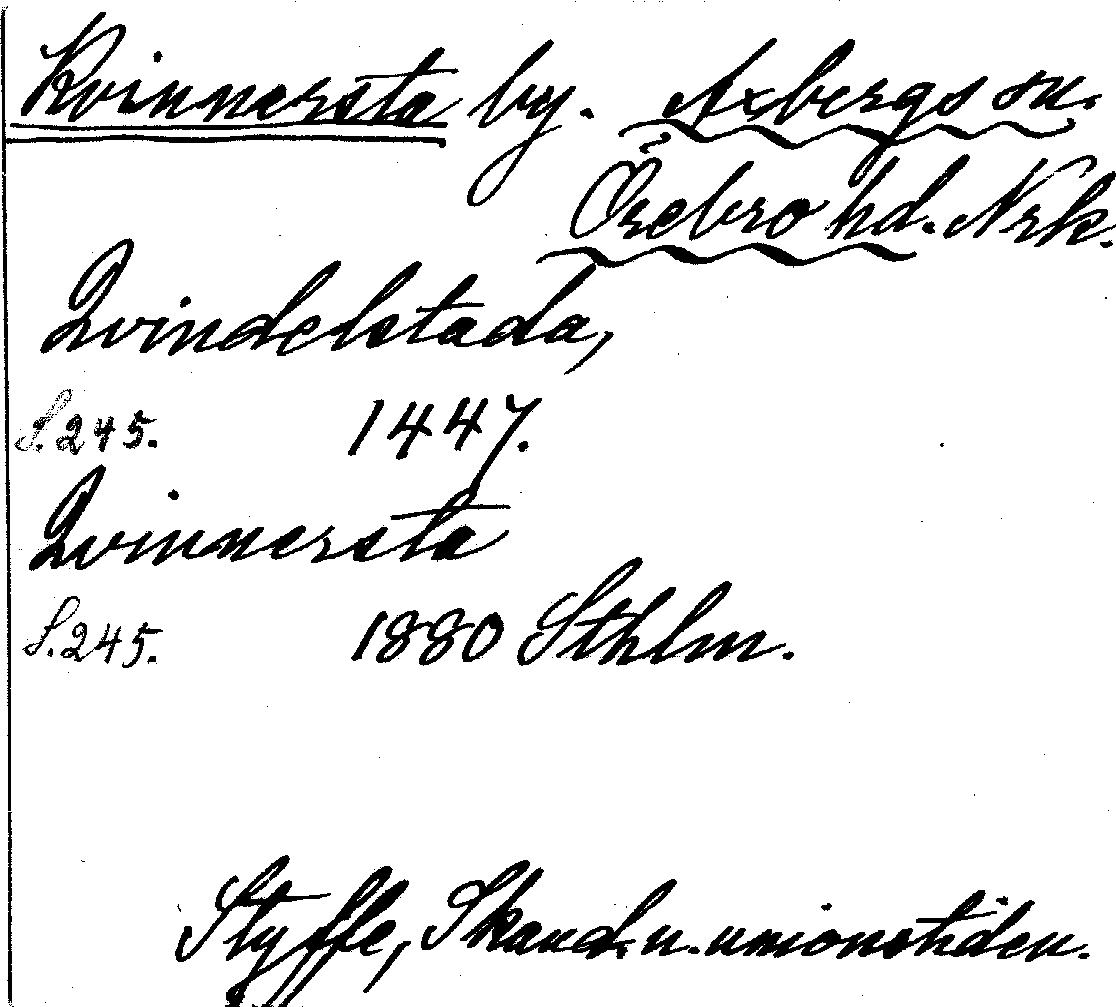 Kvinnersta by. Axbergs sn.
Örebro hd. Nrk.
Qvindelstada,
S. 245. 1447.
Qvinnersta
S. 245. 1880 Sthlm.
Styffe, Skand. u. unionstiden.